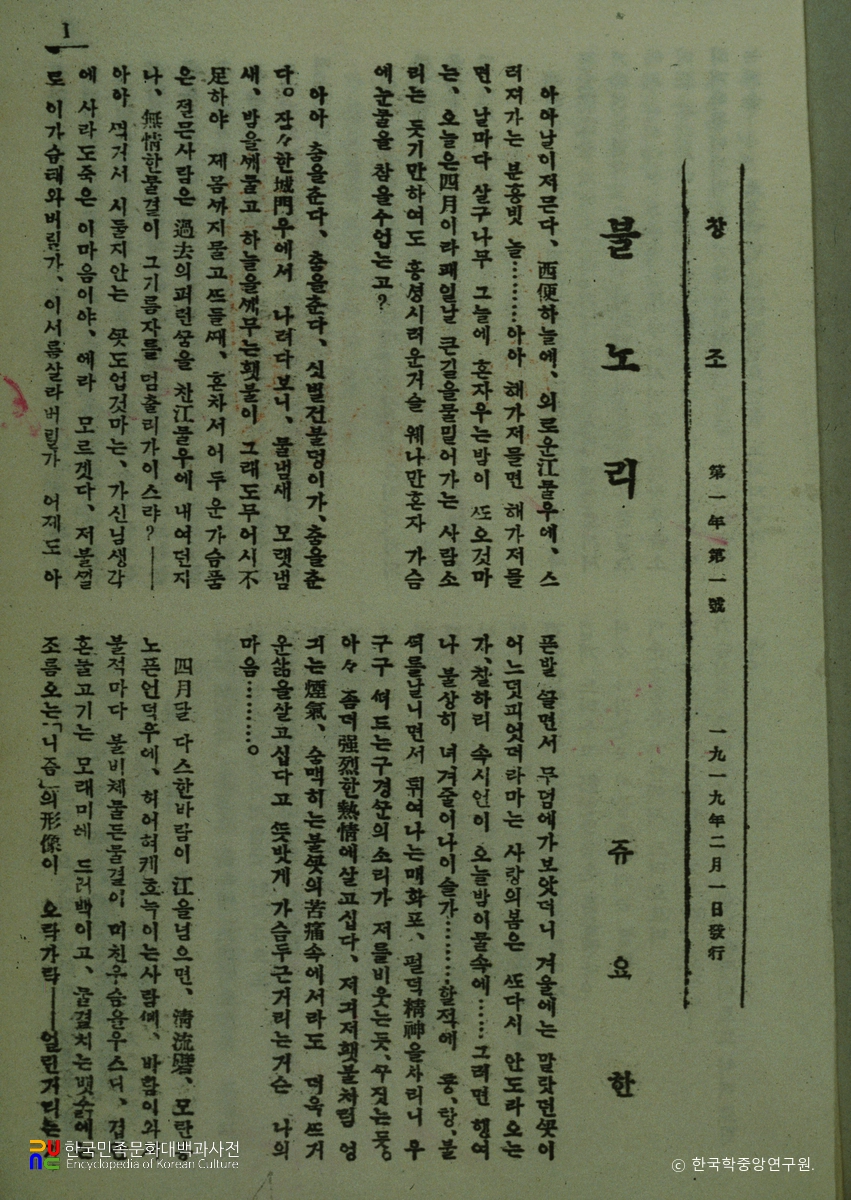 창 조 第一年第一號 一九一九年二月一日發行
불노리
쥬요한
아아날이저믄다、西便하늘에、외로운江물우에、스
러져가는 분홍빗 놀………아아 해가저믈면 해가저믈
면、날마다 살구나무 그늘에 혼자우는밤이 ᄯᅩ오것마
는、오늘은四月이라패일날 큰길을물밀어가는 사람소
리는 듯기만하여도 흥셩시러운거슬 웨나만혼자 가슴
에눈물을 참을수업는고?
아아 춤을춘다、춤을춘다、싯벌건불덩이가、춤을춘
다。잠々한城門우에서 나려다보니、물냄새 모랫냄
새、밤을ᄭᅢ물고 하늘을ᄭᅢ무는횃불이 그래도무어시不
足하야 제몸ᄭᅡ지물고ᄯᅳ들ᄯᅢ、혼차서어두운가슴품
은 졀믄사람은 過去의퍼런ᄭᅮᆷ을 찬江물우에 내여던지
나、無情한물결이 그기름자를 멈출리가이스랴?——
아아 ᄭᅥᆨ거서 시둘지안는 ᄭᅩᆺ도업것마는、가신님생각
에 사라도죽은 이마음이야、에라 모르겟다、저불ᄭᅵᆯ
로 이가슴태와버릴가、이서름살라버릴가 어제도 아
픈발 ᄭᅳᆯ면서 무덤에가보앗더니 겨울에는 말랏던ᄭᅩᆺ이
어느덧피엇더라마는 사랑의봄은 ᄯᅩ다시 안도라오는
가、찰하리 속시언이 오늘밤이물속에……그러면 행여
나 불상히 녀겨줄이나이슬가………할적에 퉁、탕、불
ᄯᅵ를날니면서 튀여나는매화포、펄덕精神을차리니 우
구구 ᄯᅥ드는구경ᄭᅮᆫ의소리가 저를비웃는듯、ᄭᅮ짓는듯。
아々 좀더强烈한熱情에살고십다、저긔저횃불처럼 엉
긔는煙氣、숨맥히는불ᄭᅩᆺ의苦痛속에서라도 더욱ᄯᅳ거
운삶을살고십다고 ᄯᅳᆺ밧게 가슴두근거리는거슨 나의
마음………。
四月달 다스한바람이 江을넘으면、淸流碧、모란봉
노픈언덕우에、허어허케흐늑이는사람ᄯᅦ、바람이와서
불적마다 불비체물든물결이 미친우슴을우스니、겁만
흔물고기는 모래미테 드러백이고、물결치는뱃슭에는
조름오는「니즘」의形像이 오락가락——얼린거리는
한국민족문화대백과사전
Encyclopedia of Korean Culture
ⓒ 한국학중앙연구원.
1